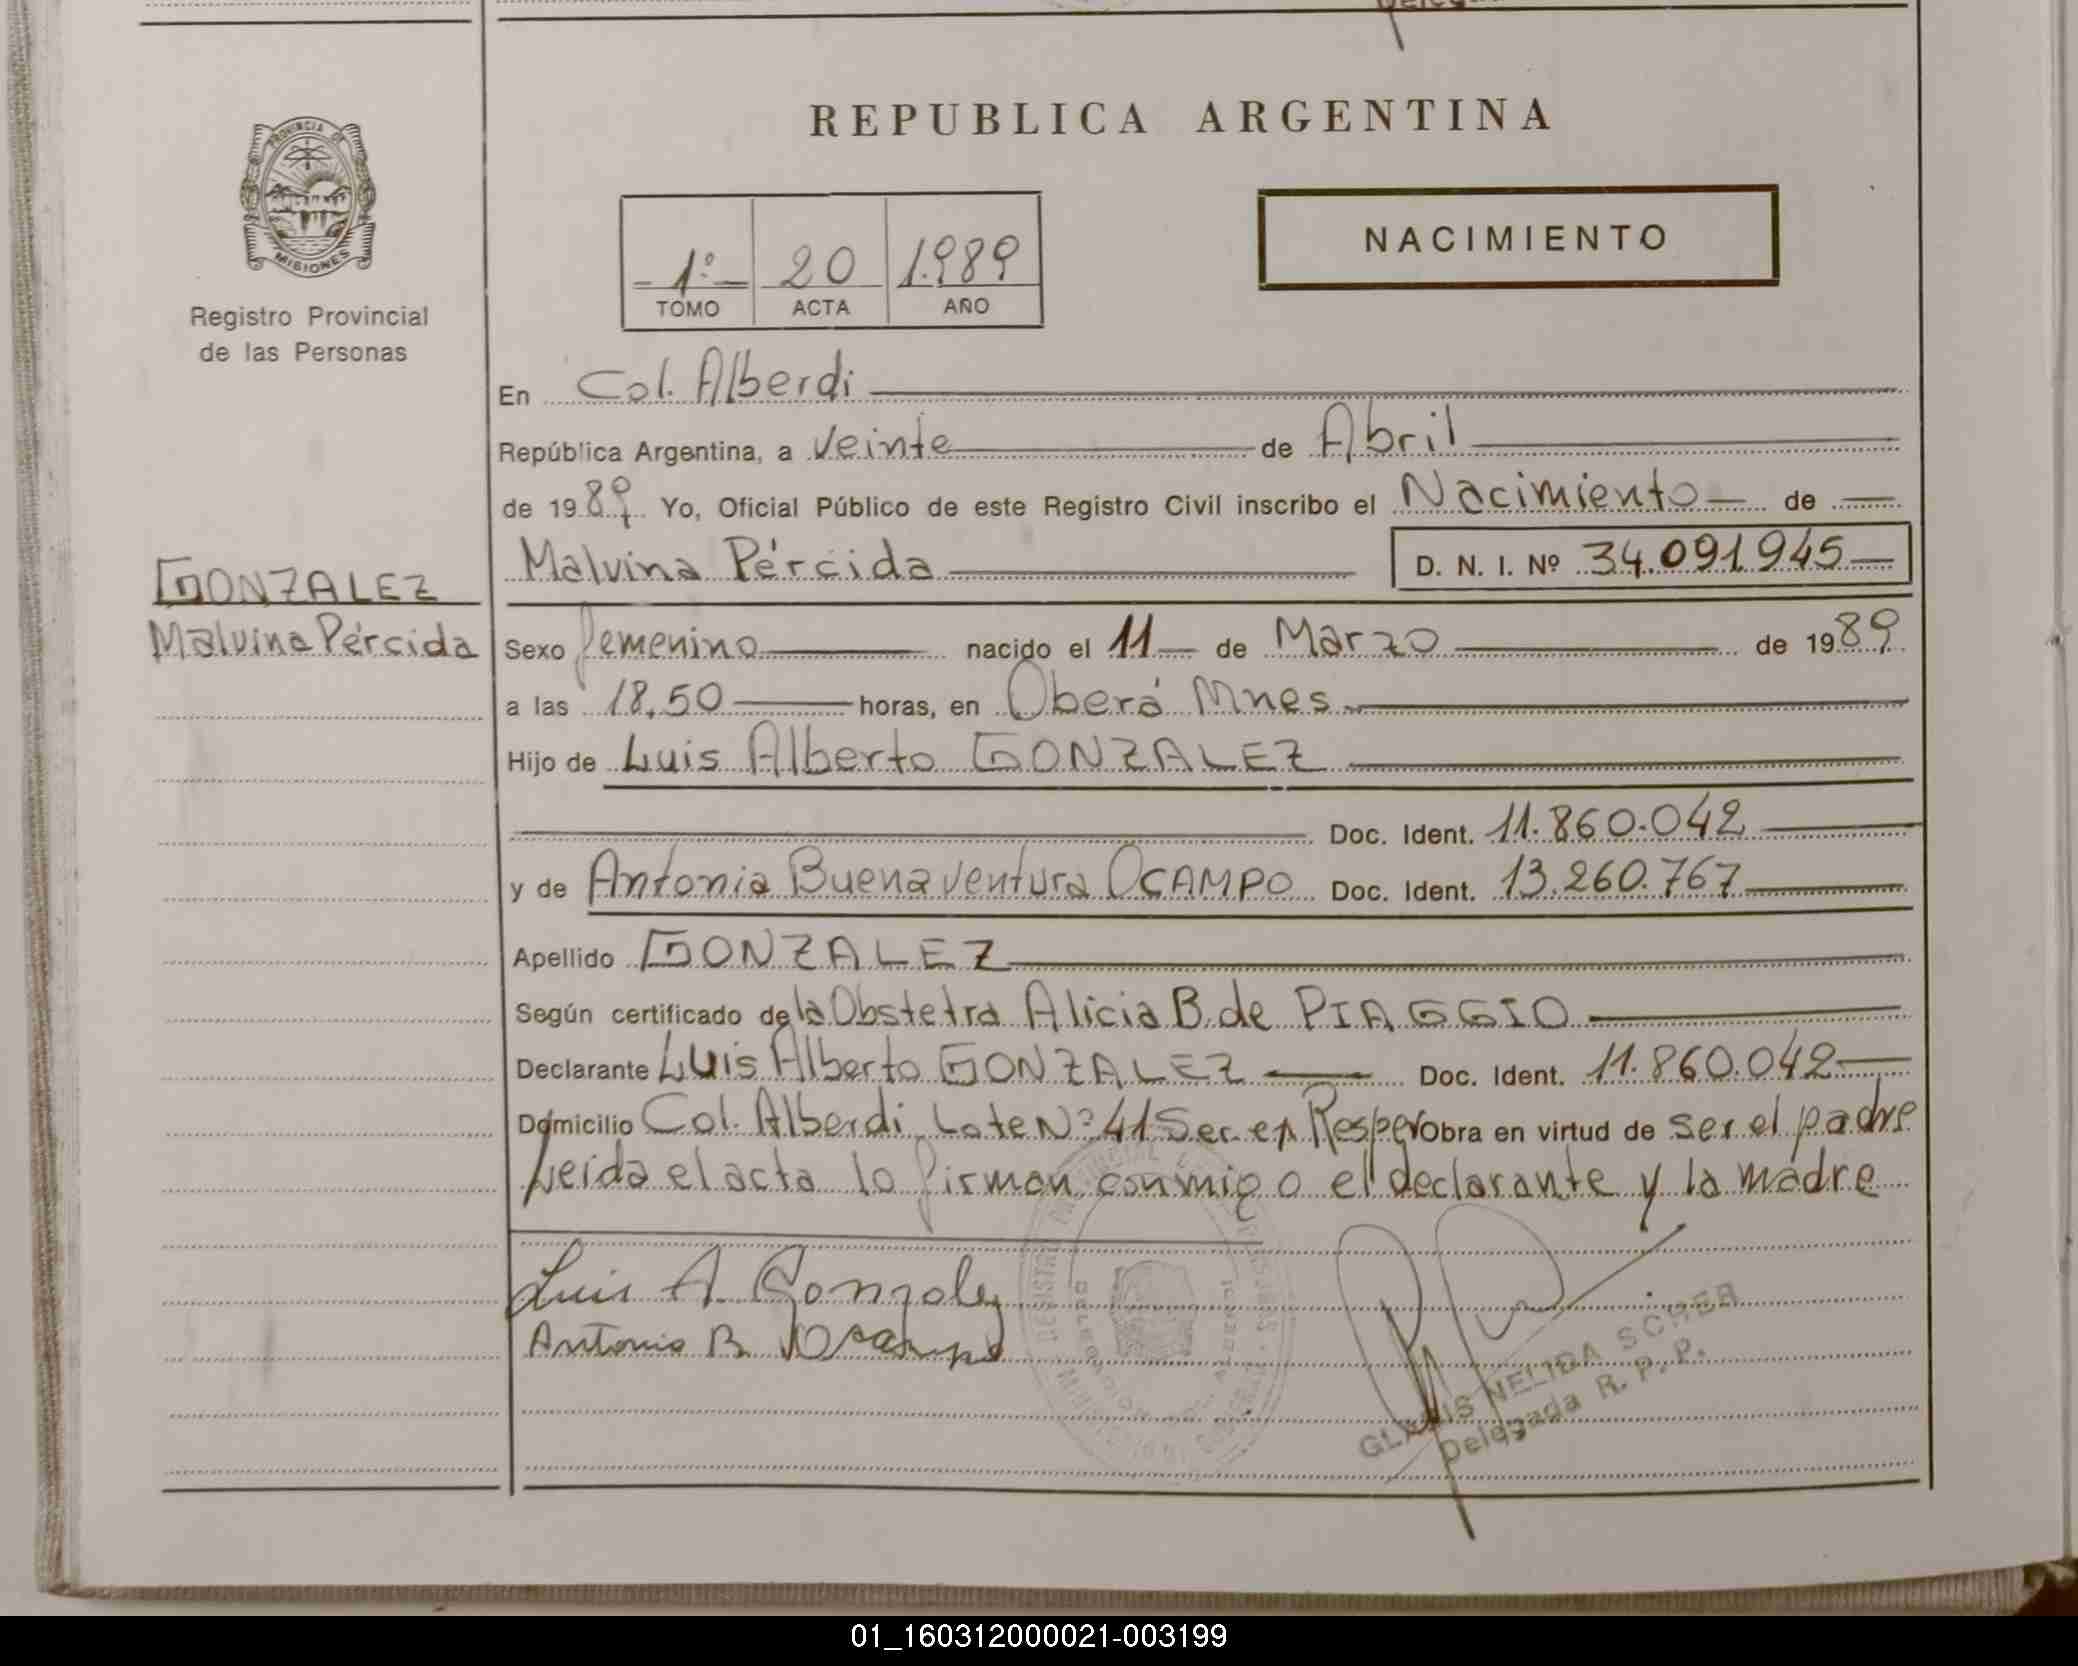 REPUBLICA ARGENTINA
PROVINCIA DE
MISIONES
Registro Provincial
de las Personas
1º 20 1.989
TOMO ACTA AÑO
NACIMIENTO
En Col. Alberdi
República Argentina, a veinte de Abril
de 1989. Yo, Oficial Público de este Registro Civil inscribo el Nacimiento de
Malvina Pércida D. N. I. Nº 34.091.945
GONZALEZ
Malvina Pércida
Sexo femenino nacido el 11 de Marzo de 1989
a las 18,50 horas, en Oberá Mnes
Hijo de Luis Alberto GONZALEZ
Doc. Ident. 11.860.042
y de Antonia Buenaventura OCAMPO Doc. Ident. 13.260.767
Apellido GONZALEZ
Según certificado de la Obstetra Alicia B. de PIAGGIO
Declarante Luis Alberto GONZALEZ Doc. Ident. 11.860.042
Domicilio Col. Alberdi Lote Nº 41 Sec. Obra en virtud de ser el padre
Leída el acta lo firman conmigo el declarante y la madre
Luis A. Gonzalez
Antonia B. Ocampo
NELIDA SCHER
Delegada R. P. P.
01_160312000021-003199